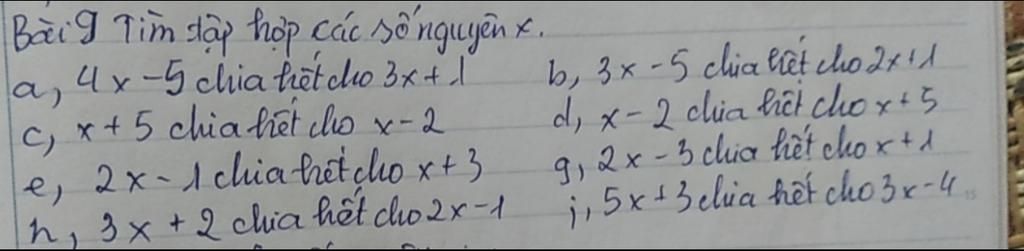 Bài 9 Tìm tập hợp các số nguyên x.
a, 4x - 5 chia hết cho 3x + 1 b, 3x - 5 chia hết cho 2x + 1
c, x + 5 chia hết cho x - 2 d, x - 2 chia hết cho x + 5
e, 2x - 1 chia hết cho x + 3 g, 2x - 3 chia hết cho x + 1
h, 3x + 2 chia hết cho 2x - 1 i, 5x + 3 chia hết cho 3x - 4